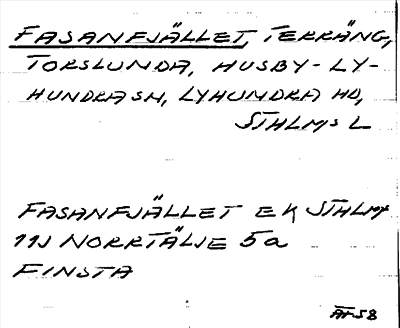 FASANFJÄLLET, TERRÄNG,
TORSLUNDA, HUSBY-LY-
HUNDRA SN, LYHUNDRA HD,
STHLMS L
FASANFJÄLLET EK STHLM
11J NORRTÄLJE 5a
FINSTA
ÄF58